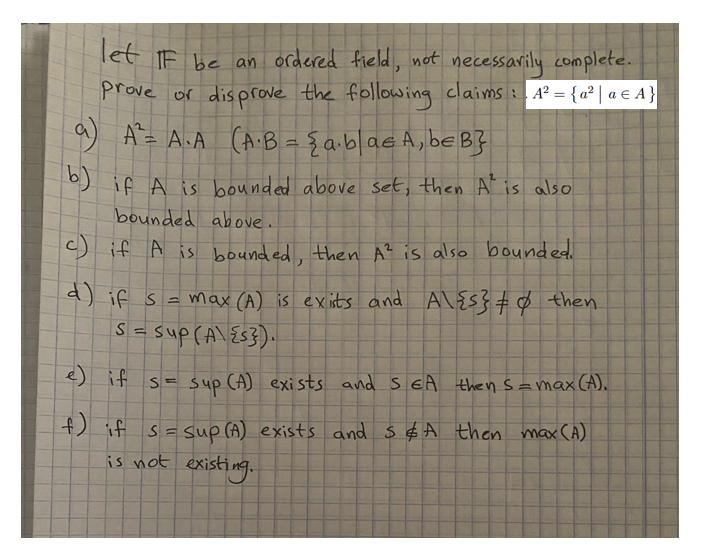 let 𝔽 be an ordered field, not necessarily complete.
prove or disprove the following claims : A² = { a² | a ∈ A}
a) A² = A.A (A·B = {a·b|a∈A, b∈B}
b) if A is bounded above set, then A² is also
bounded above.
c) if A is bounded, then A² is also bounded.
d) if s = max(A) is exits and A\{s} ≠ ∅ then
s = sup(A\{s}).
e) if s = sup(A) exists and s ∈A then s = max(A).
f) if s = sup(A) exists and s ∉ A then max(A)
is not existing.